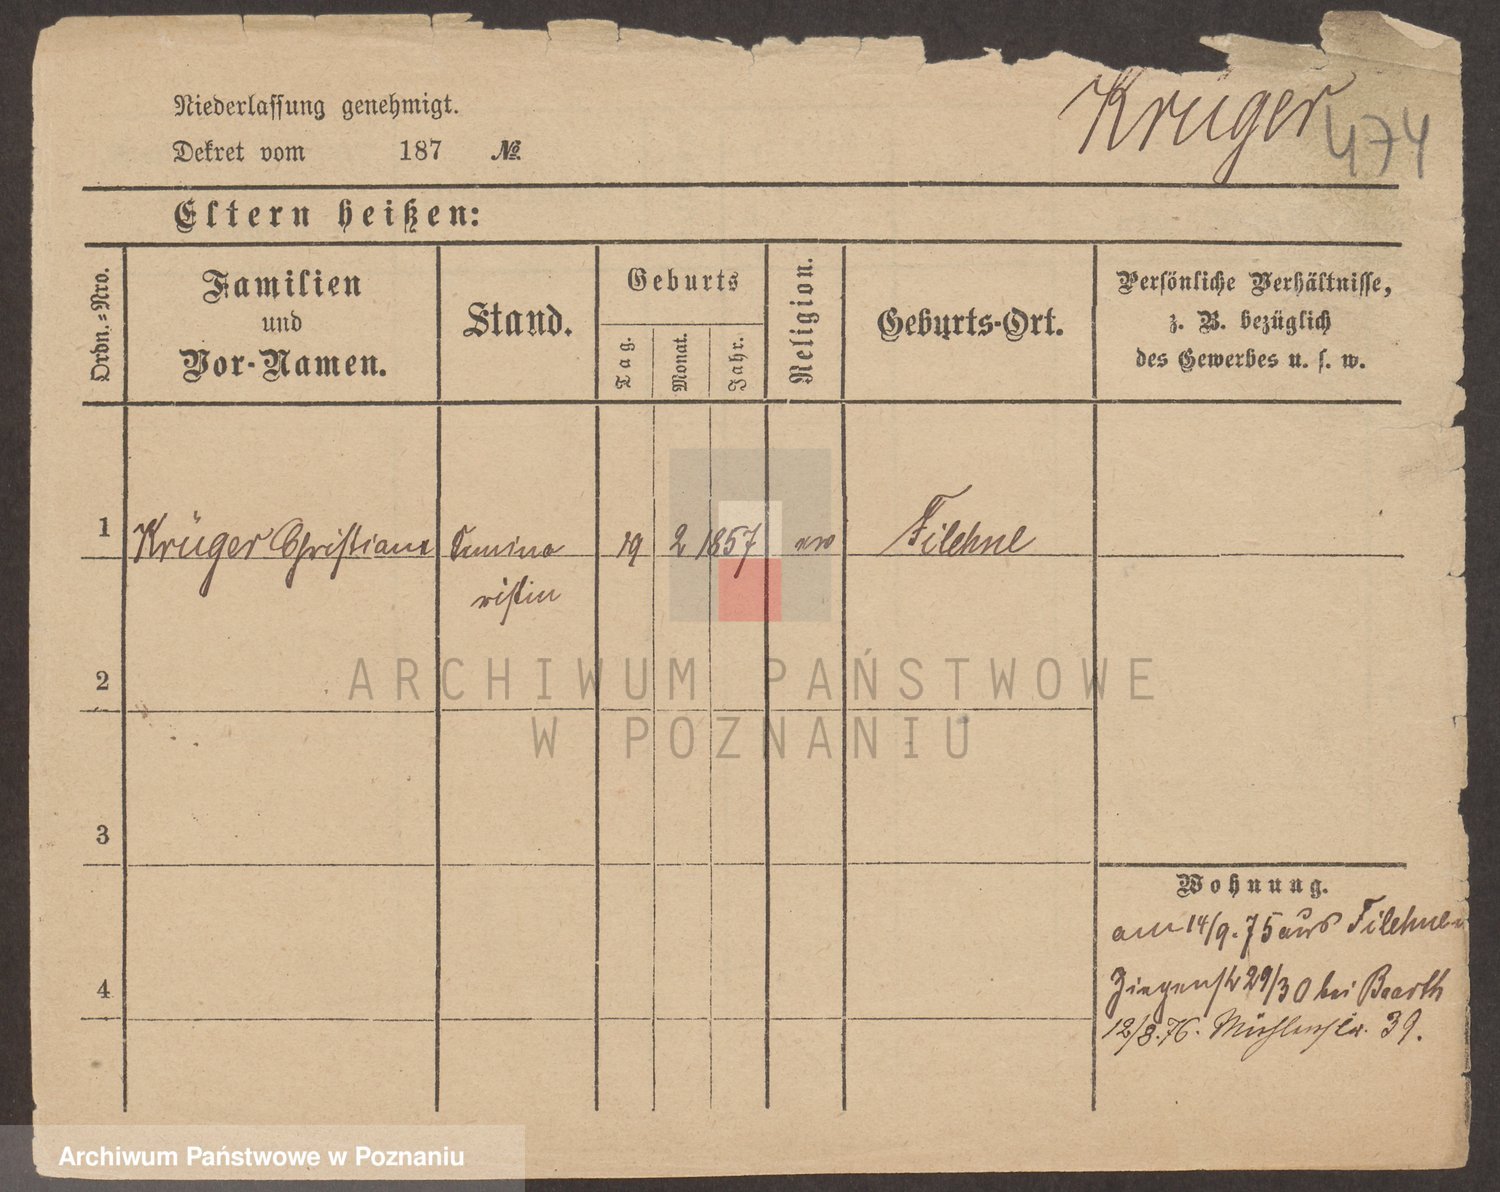 Krüger
474
Niederlassung genehmigt.
Dekret vom 187 №
Eltern heißen:
Ordn.-Nro.
Familien
und
Vor-Namen.
Stand.
Geburts
Tag.
Monat.
Jahr.
Religion.
Geburts-Ort.
Persönliche Verhältnisse,
z. B. bezüglich
des Gewerbes u. s. w.
1 Krüger Christiane Semina 19 2 1857 ev Filehne
ristin
2
3
4
Wohnung.
am 14/9. 75 aus Filehne
Ziegenstr 29/30 bei Baarth
12/8. 76. Mühlenstr. 39.
ARCHIWUM PAŃSTWOWE
W POZNANIU
Archiwum Państwowe w Poznaniu